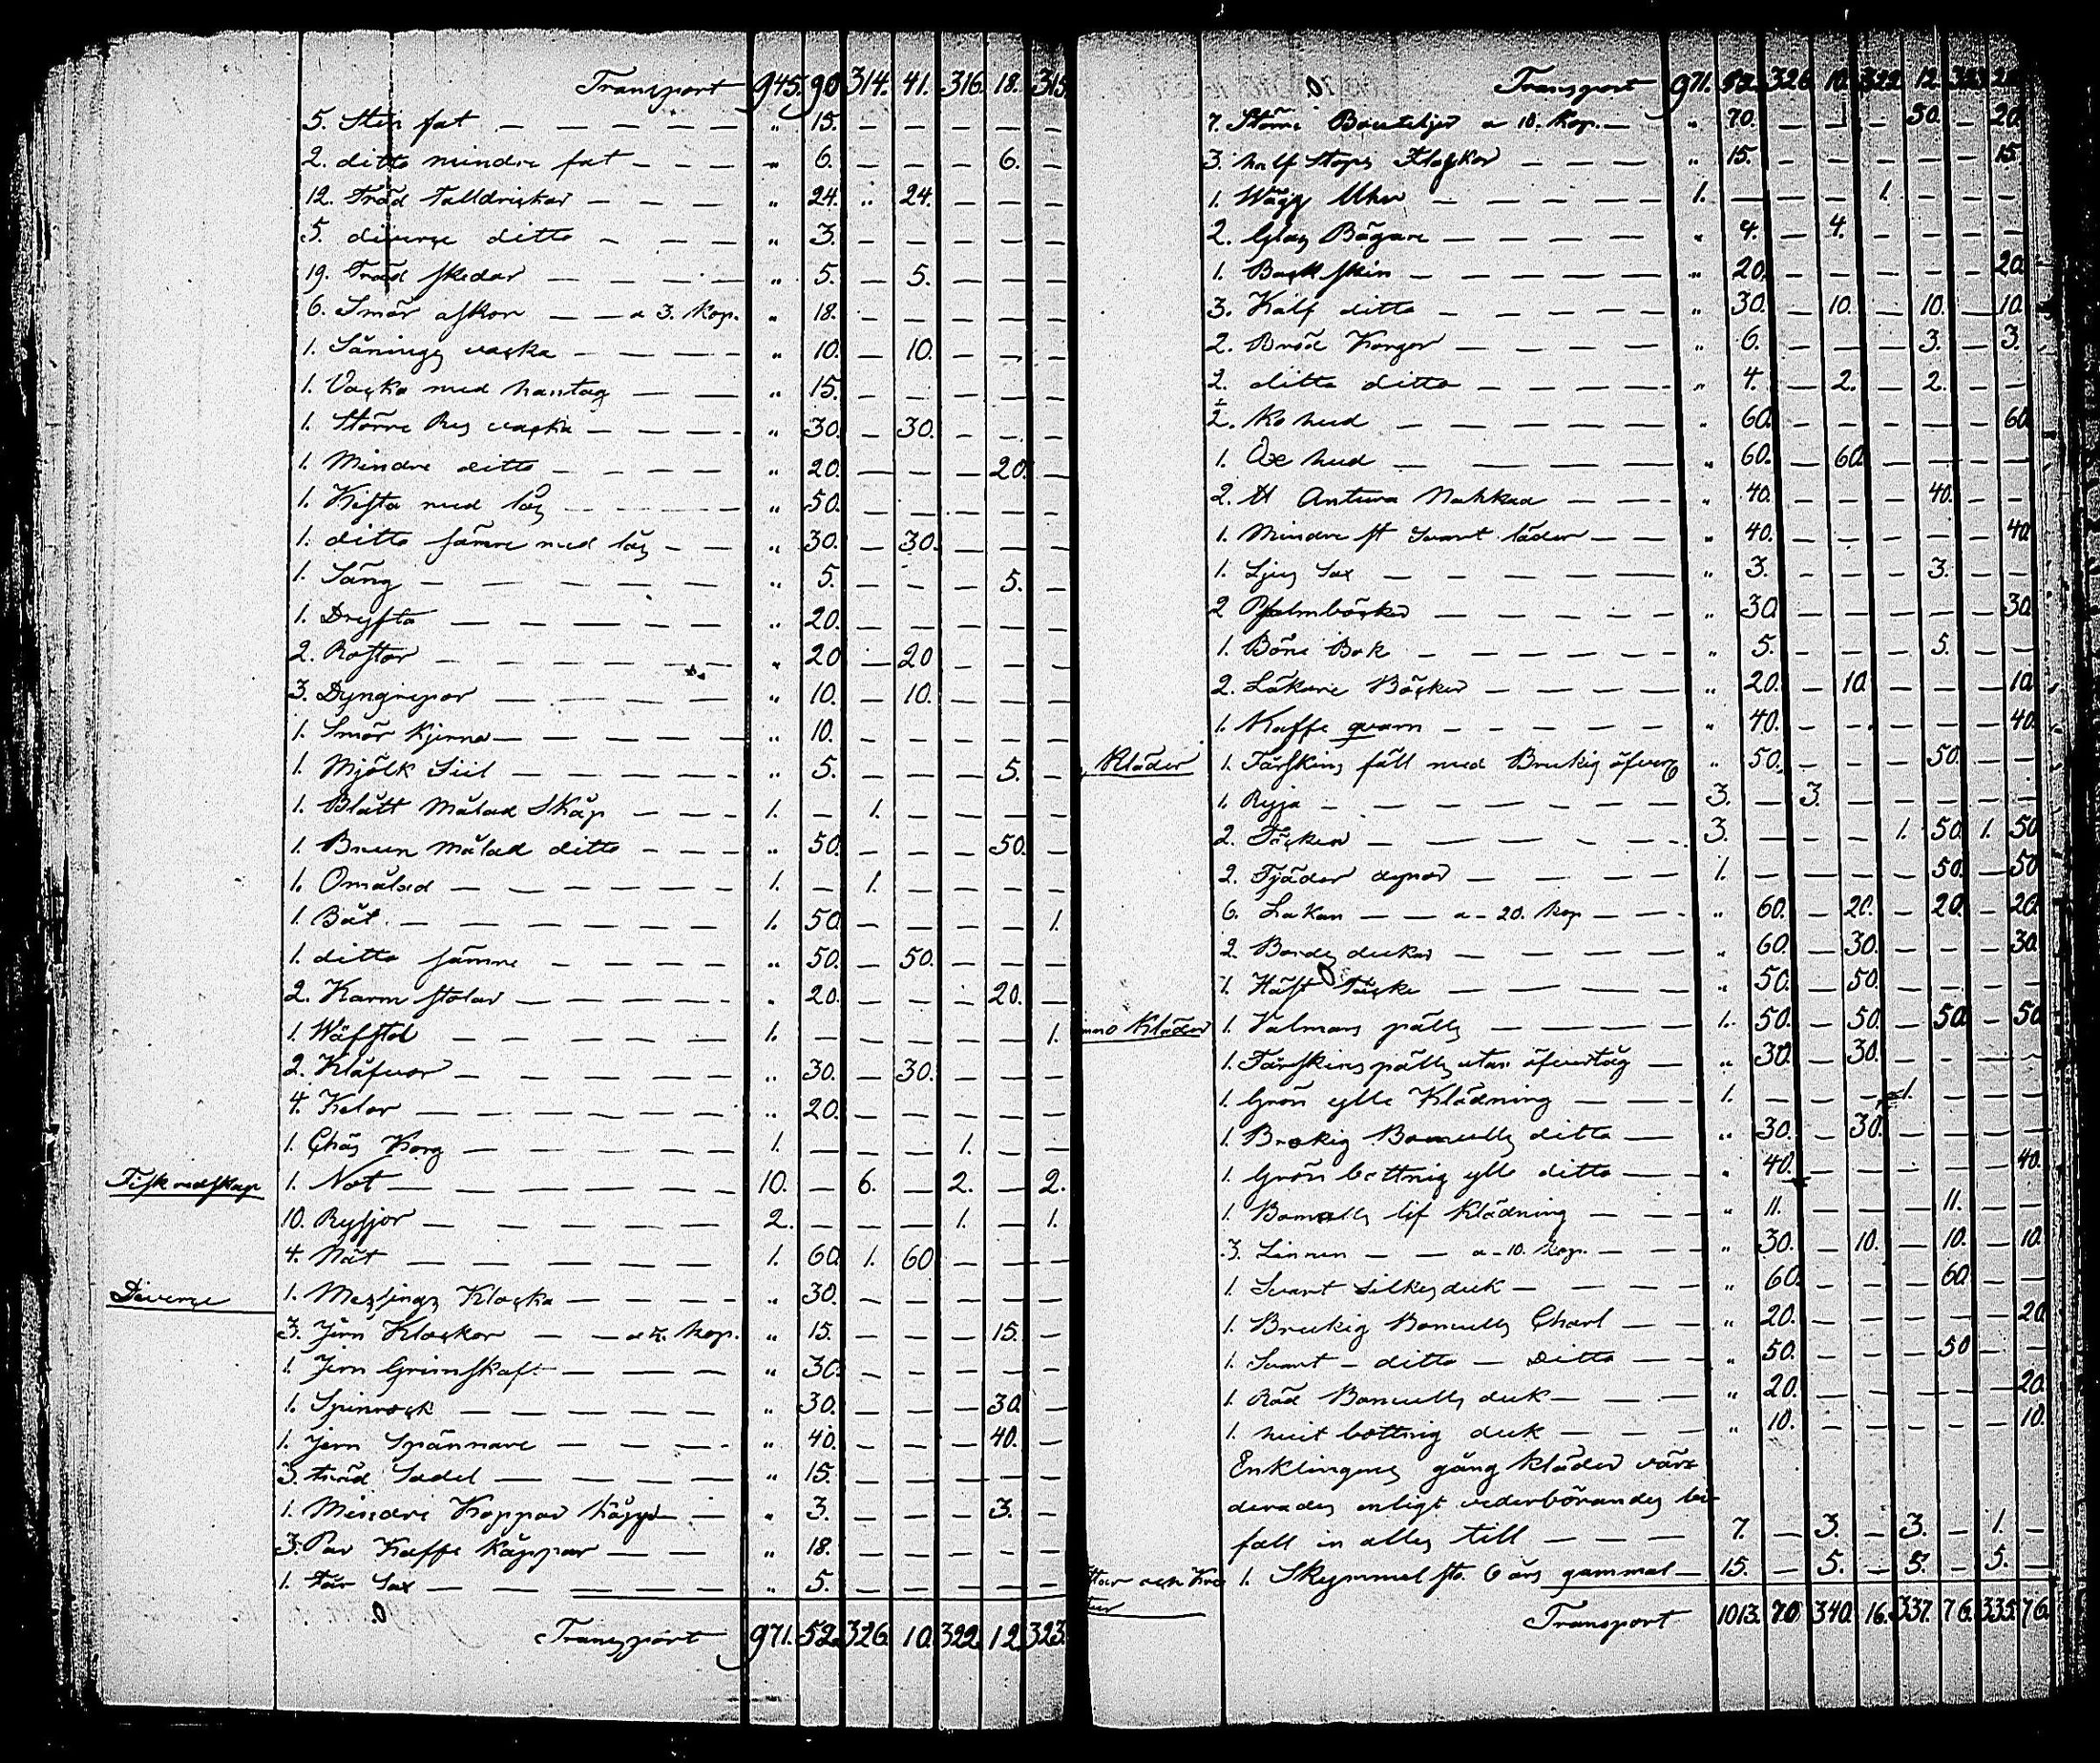 Transport 945. 90 314. 41. 316. 18. 315.
5. Sten fat — — — — — „ 15. — — — — —
2. ditto mindre fat — — — „ 6. — — — 6. —
12. Träd Talldrickar — — — „ 24. „ 24. — — —
5. diverse ditto — — — „ 3. — — — — —
19. Träd skedar — — — — „ 5. — 5. — — —
6. Smör askor — — a 3. Kop. „ 18. — — — — —
1. Sånings vacka — — — — „ 10. — 10. — — —
1. Vacka med hantag — — „ 15. — — — — —
1. Större Rus vacka — — — — „ 30. — 30. — — —
1. Mindre ditto — — — — „ 20. — — — 20. —
1. Kista med lås — — — — „ 50. — — — — —
1. ditto sämre med lås — — „ 30. — 30. — — —
1. Säng — — — — — — „ 5. — — — 5. —
1. Dryfta — — — — — — „ 20. — — — — —
2. Rostar — — — — — — „ 20 — 20 — — —
3. Dyngrepor — — — — „ 10. — 10. — — —
1. Smör Kjerna — — — — — „ 10. — — — — —
1. Mjölk Siil — — — — — „ 5. — — — 5. —
1. Blått Målad Skåp — — — 1. — 1. — — — —
1. Brun målad ditto — — — „ 50. — — — 50. —
1. Omålad — — — — — — 1. — 1. — — — —
1. Båt. — — — — — — 1. 50. — — — — 1.
1. ditto sämre — — — — „ 50. — 50. — — —
2. Karm stolar — — — — — „ 20. — — — 20. —
1. Wäfstol — — — — — 1. — — — — — 1.
2. Klåfvar — — — — — — „ 30. — 30. — — —
4. Kelor — — — — — — „ 20. — — — — —
1. Chäs Korg — — — — — — 1. — — — 1. — —
Fisk redskap 1. Not — — — — — — — 10. — 6. — 2. — 2.
10. Rysjor — — — — — — 2. — — — 1. — 1.
4. Nät — — — — — — 1. 60. 1. 60 — — —
Diverse 1. Messings Klocka — — — — „ 30. — — — — —
3. Jern Klockor — — a 5. Kop. „ 15. — — — 15. —
1. Jern Grimskaft — — — „ 30. — — — — —
1. Spinrock — — — — — — „ 30. — — — 30. —
1. Jern Spännare — — — — „ 40. — — — 40. —
3. träd Sadel — — — — — „ 15. — — — — —
1. Mindre Koppar — — „ 3. — — — 3. —
3. Par Kaffe Koppar — — „ 18. — — — — —
1. Får Sax — — — — — „ 5. — — — — —
Transport 971. 52. 326. 10. 322. 12. 323.
Transport 971. 52. 326. 10. 322. 12.
7. Större Bouteljer a 10. Kop. — „ 70. — — — 50. — 20.
3. half Stops Flaskor — — — „ 15. — — — — — 15.
1. Wägg Uhr — — — — 1. — — — 1. — — —
2. Glas Bägare — — — — „ 4. — 4. — — — —
1. Bock skin — — — — — „ 20. — — — — — 20.
3. Kalf ditto — — — — — „ 30. — 10. — 10. — 10.
2. Bröd Korgar — — — — „ 6. — — — 3. — 3.
2. ditto ditto — — — — — „ 4. — 2. — 2. — —
½. Ko hud — — — — — „ 60. — — — — — 60
1. Oxe hud — — — — „ 60. — 60. — — — —
2. st Antura Nahkaa — — — „ 40. — — — 40. — —
1. Mindre st Svart läder — — „ 40. — — — — — 40.
1. Ljus Sax — — — — — „ 3. — — — 3. — —
2 Psalmböcker — — — — — „ 30. — — — — — 30.
1. Böne Bok — — — — — „ 5. — — — 5. — —
2. Läkare Böcker — — — — „ 20. — 10. — — — 10.
1. Kaffe qvarn — — — — — „ 40. — — — — — 40.
Kläder 1. Fårskins fäll med Brukig öfverg „ 50. — — — 50. — —
1. Ryja — — — — — — — 3. — 3. — — — — —
2. Täcken — — — — — 3. — — — 1. 50. 1. 50
2. Fjäder dynor — — — — 1. — — — — 50. — 50
6. Lakan — — a 20. Kop — — — „ 60. — 20. — 20. — 20.
2. Bords dukar — — — — „ 60. — 30. — — — 30.
1. Häst Täcke — — — — „ 50. — 50. — — — —
Kläder 1. Valmars pälts — — — — 1. 50. — 50. — 50. — 50
1. Fårskins pälts utan öfvertåg — „ 30. — 30. — — — —
1. Grön ylle Klädning — — — 1. — — — 1. — — —
1. Brokig Bomulls ditto — — „ 30. — 30. — — — —
1. Grön bottnig ylle ditto — — „ 40. — — — — — 40.
1. Bomulls lif Klädning — — — „ 11. — — — 11. — —
3. Linnen — — a 10. Kop. — — — „ 30. — 10. — 10. — 10.
1. Svart Silkes duk — — — — „ 60. — — — 60. — —
1. Brukig Bomulls Charl — — „ 20. — — — — — 20.
1. Svart — ditto — Ditto — — „ 50. — — — 50 — —
1. Röd Bomulls duk — — — „ 20. — — — — — 20.
1. hvit bottnig duk — — — „ 10. — — — — — 10.
Enklingens gång kläder vär-
derades enligt vederbörandes bi-
fall in alles till — — — — 7. — 3. — 3. — 1. —
1. Skymmel sto 6 års gammal — 15. — 5. — 5. — 5. —
Transport 1013. 70. 340. 16. 337. 76. 335. 76.